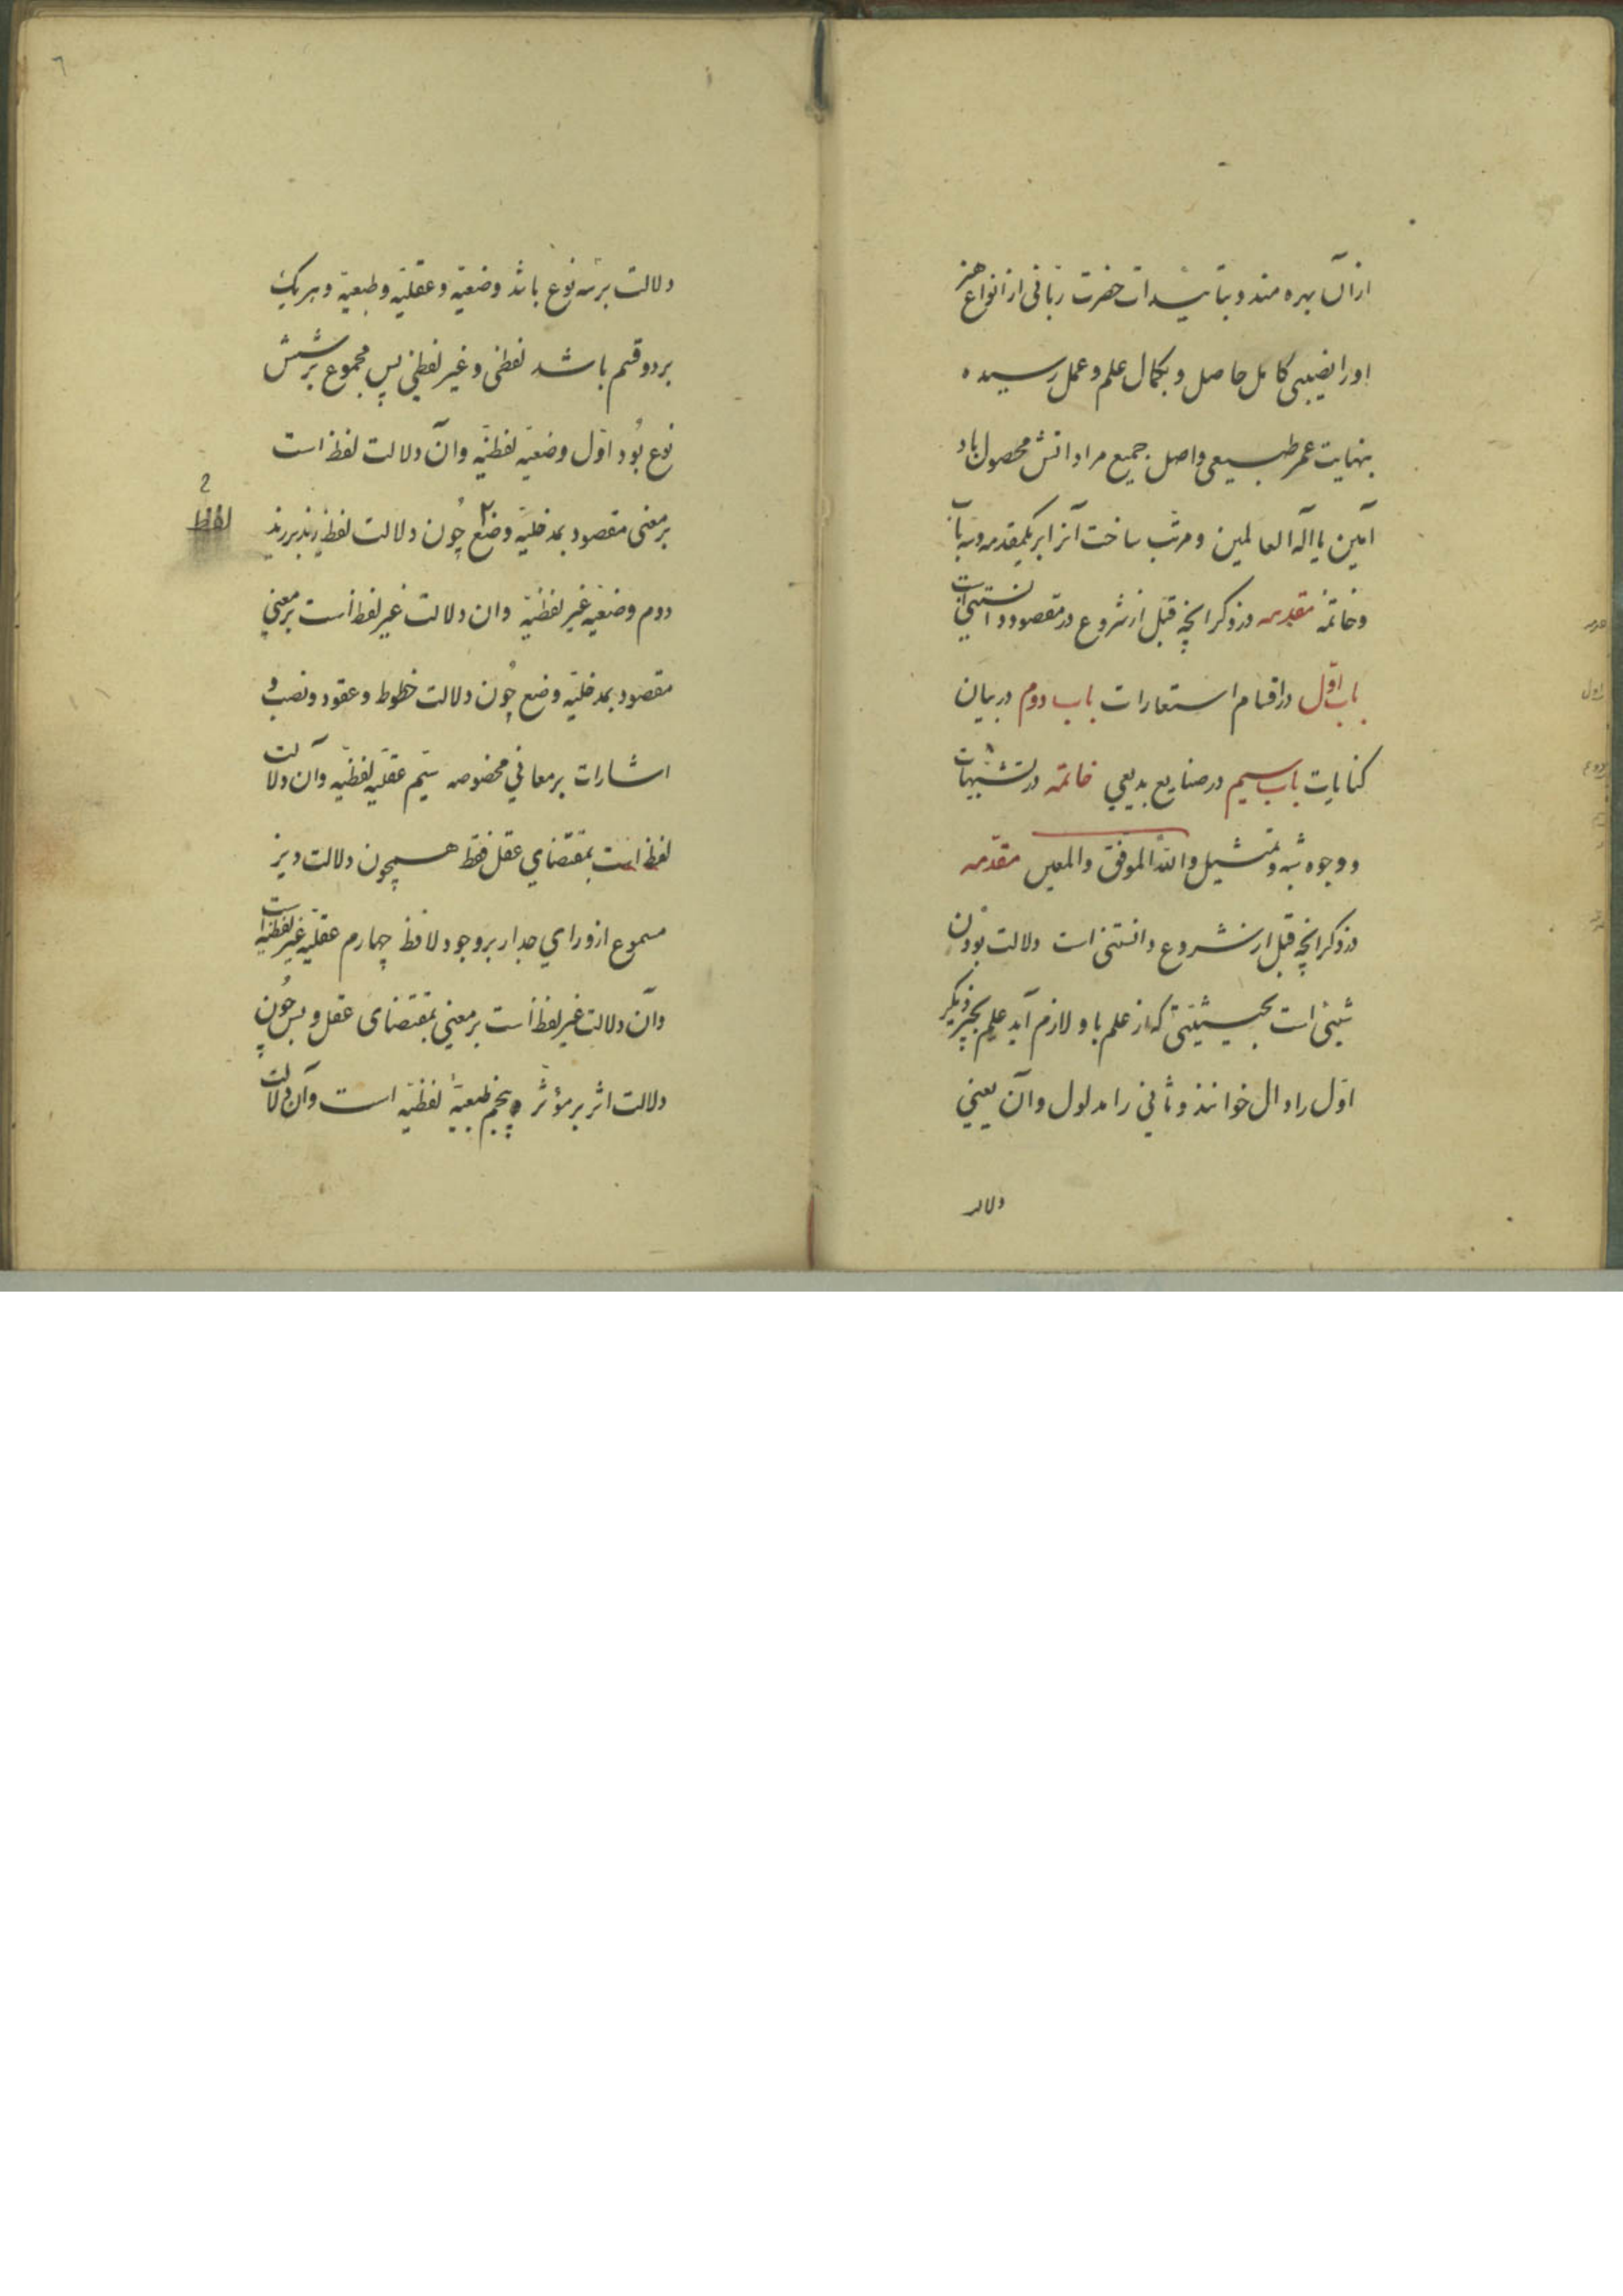 ازان بهره مند و بتائیدات حضرت ربّانی از انواع هنر
اورا نصیبی کامل حاصل و بکمال علم و عمل رسیده
بنهایت عمر طبیعی واصل جمیع مراداتش محصول باد
آمین یا اله العالمین و مرتب ساخت آنرا بر یکمقدمه و سه باب
و خاتمه مقدمه در ذکر انچه قبل از شروع در مقصود دانستنی است
باب اوّل در اقسام استعارات باب دوم در بیان
کنایات باب سیم در صنایع بدیعی خاتمه در تشبیهات
و وجوه شبه و تمثیل والله الموفق والمعین مقدمه
در ذکر انچه قبل از شروع دانستنی است دلالت بودن
شیئی است بحیثیتی که از علم باو لازم آید علم بچیز دیگر
اوّل را دال خوانند و ثانی را مدلول و آن یعنی
دلالت
دلالت بر سه نوع باشد وضعیّه و عقلیّه و طبعیّه و هر یک
بر دو قسم باشد لفظی و غیر لفظی پس مجموع بر شش
نوع بُود اوّل وضعیّه لفظیّه و آن دلالت لفظ است
بر معنی مقصود بمدخلیّه وضع چُون دلالت لفظ زید بر زید
دوم وضعیّه غیر لفظیّه و ان دلالت غیر لفظ است بر معنی
مقصود بمدخلیّه وضع چُون دلالت خطوط و عقود و نصب و
اشارات بر معانی مخصوصه سیّم عقلیّه لفظیّه و آن دلالت
لفظ است بمقتضای عقل فقط همچون دلالت دیز
مسموع از ورای جدار بر وجود لافظ چهارم عقلیّه غیر لفظیّه است
و آن دلالت غیر لفظ است بر معنی بمقتضای عقل و بس چُون
دلالت اثر بر مؤثر و پنجم طبعیّهٔ لفظیّه است و آن دلالت